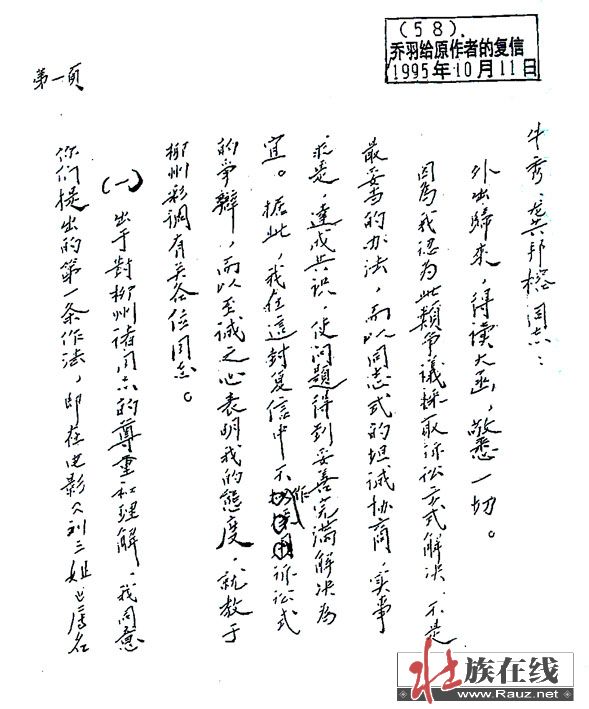 (58).
乔羽给原作者的复信
1995年10月11日
第一頁
牛秀、龙共邦榕同志：
外出歸來，得读大函，敬悉一切。
因為我認为此類争議採取訴訟方式解决，不是
最妥当的办法，而以同志式的坦诚协商，实事
求是，達成共识，使问题得到妥善完满解决為
宜。据此，我在這封复信中不作訴訟式
的争辯，而以至诚之心表明我的態度，就教于
柳州彩调有关各位同志。
(一) 出于對柳州诸同志的尊重和理解，我同意
你们提出的第一条作法，即在电影《刘三姐》片名
壮族在线
www.Rauz.net